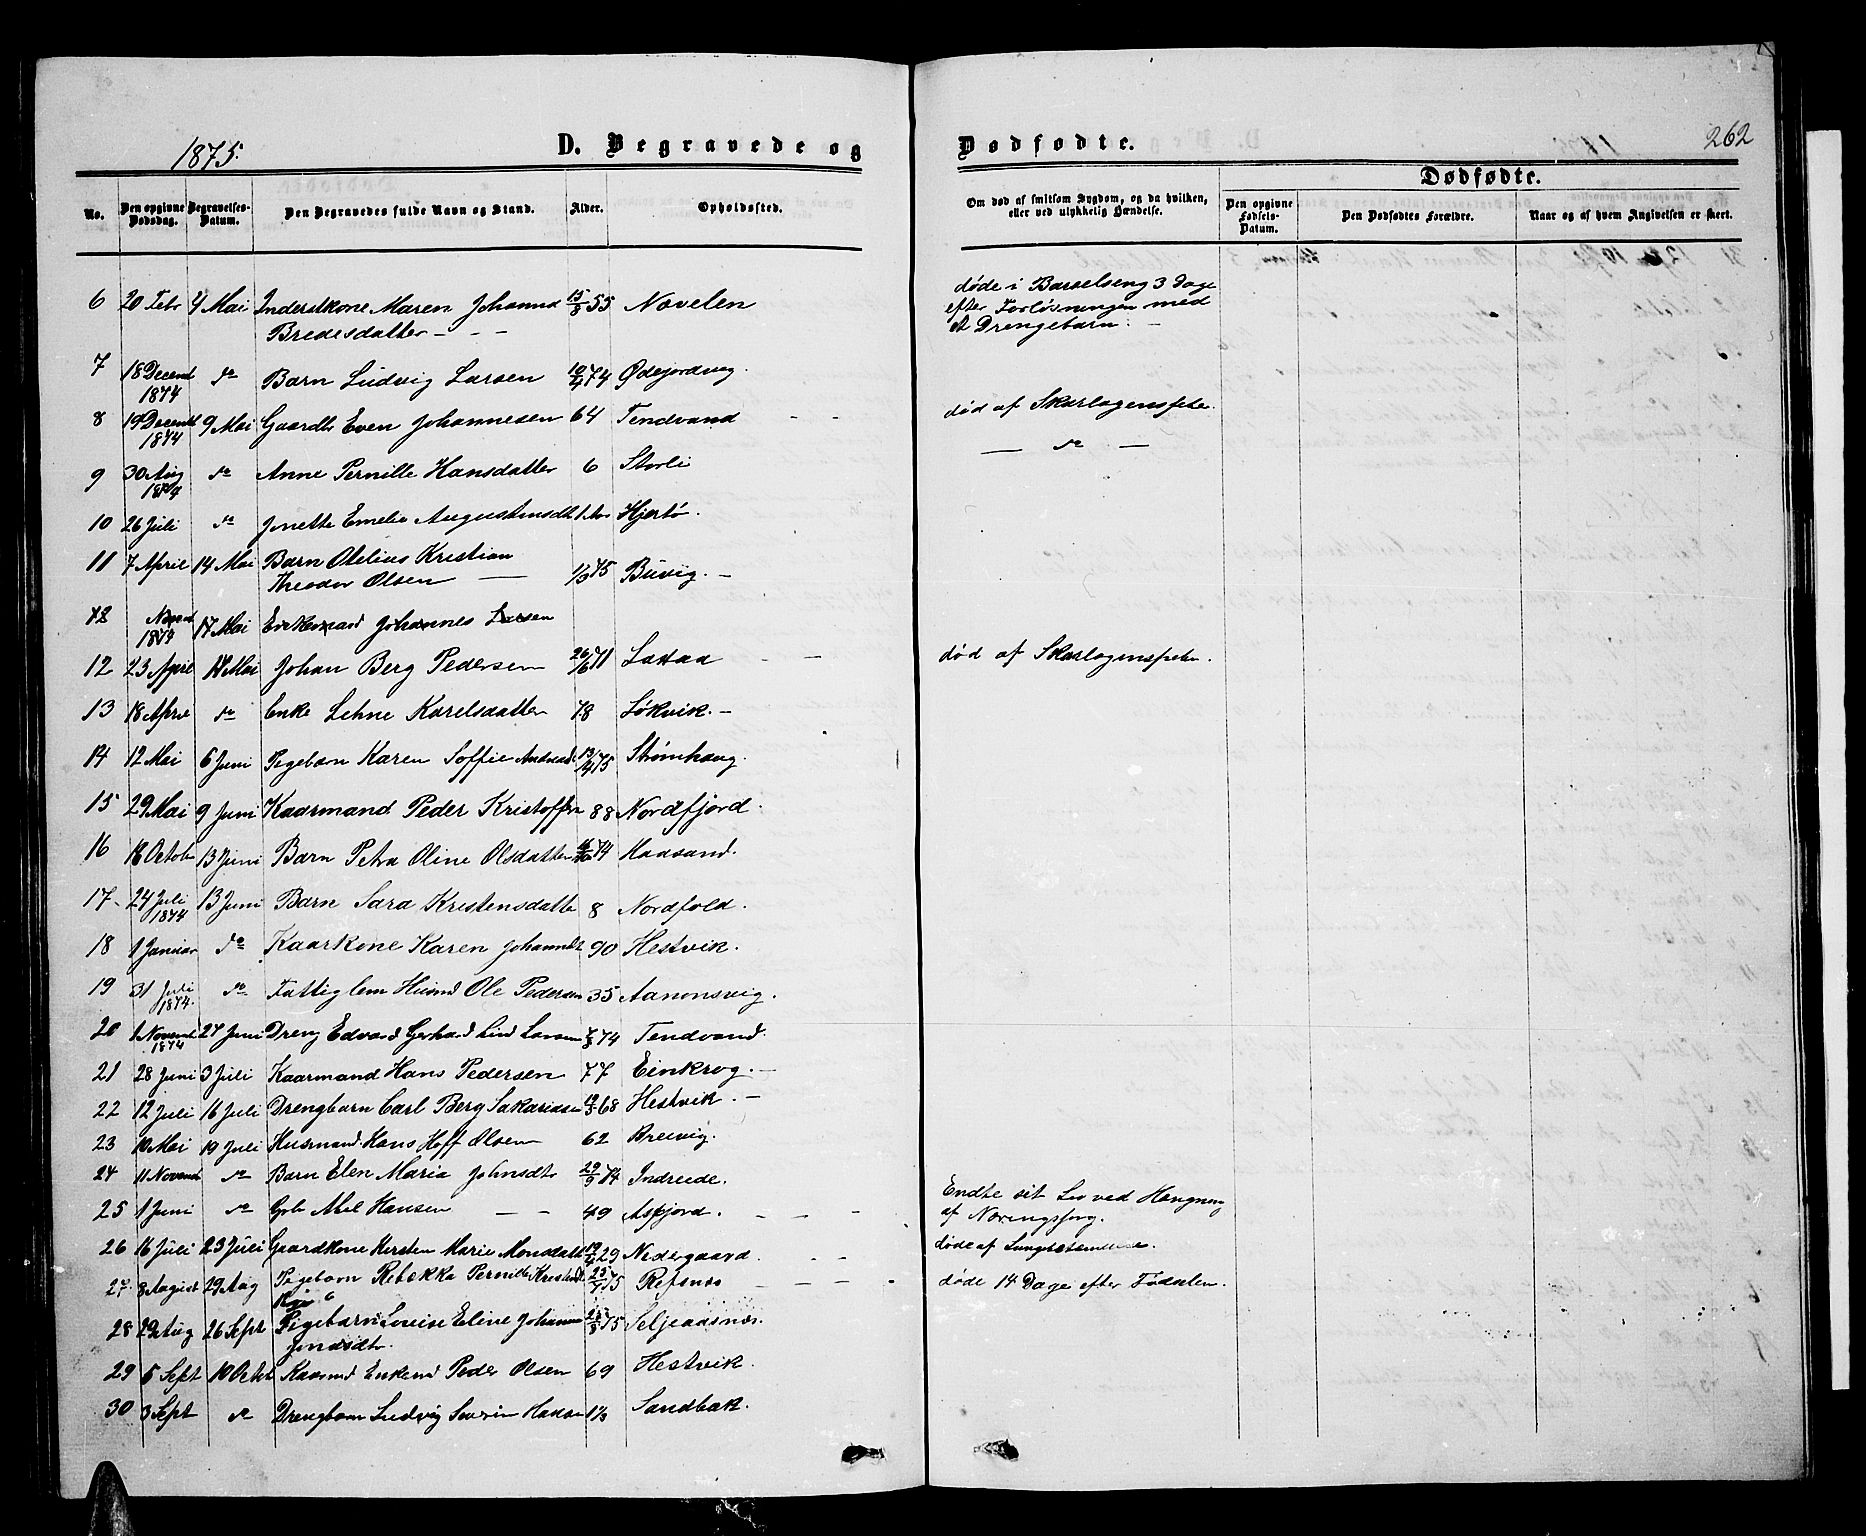 1875.
D. Begravede og
Dødfødte.
262
No.
Den opgivne Dødsdag.
Begravelses-Datum.
Den Begravedes fulde Navn og Stand.
Alder.
Opholdssted.
Om død af smitsom Sygdom, og da hvilken, eller ved ulykkelig Hændelse.
Dødfødte.
Den opgivne Fødsels-Datum.
Den Dødfødtes Forældre.
Naar og af hvem Angivelsen er skeet.
6 20 Febr 4 Mai Inderstkone Maren Johanna 15/8 55 Nøvelen døde i Barselseng 3 Dage
Bredesdatter - - - efter Forløsningen med
et Drengebarn. -
7 18 Decemb 1874 do Barn Ludvig Larsen 10/4 74 Ødejordvig.
8 19 Decemb 1874 9 Mai Gaardbr Even Johannesen 64 Tendvand - - død af Skarlagensfeber.
9 30 Aug 1874 do Anne Pernille Hansdatter 6 Storli — do —
10 26 Juli do Jonette Emelie Augustinsdt 1 Aar Hjertø.
11 7 April 14 Mai Barn Otelius Kristian
Theodor Olsen — 1/3 75 Buvig. -
12 1874 17 Mai Enkemand Johannes Larsen
12 23 April 17 Mai Johan Berg Pedersen 26/6 71 Laxaa - - død af Skarlagensfeber.
13 18 April do Enke Lehne Karelsdatter 78 Løkvik. -
14 12 Mai 6 Juni Pigebarn Karen Soffie Andreasd 13/4 75 Strømhaug.
15 29 Mai 9 Juni Kaarmand Peder Kristoffersen 88 Nordfjord.
16 18 October 13 Juni Barn Petra Oline Olsdatter 74 Maasand.
17 24 Juli 1874 13 Juni Barn Sara Kristensdatter 8 Nordfold.
18 1 Januar do Kaarkone Karen Johannedt 90 Hestvik.
19 31 Juli 1874. do Fattiglem Husmd Ole Pedersen 35 Aanonsvig.
20 1 Novemb 1874 27 Juni Dreng Edvard Gerhard Lind Larsen 7/8 74 Tendvand.
21 28 Juni 3 Juli Kaarmand Hans Pedersen 77 Einkrog. -
22 12 Juli 16 Juli Drengbarn Carl Berg Sakariasen 68 Hestvik. -
23 10 Mai 19 Juli Husmand. Hans Hoff Olsen 62 Breivig.
24 11 Novemb do Barn Elen Maria Johnsdt 29/9 74 Indreide.
25 1 Juni do Gbr Abel Hansen - - 49 Asfjord. - - - Endte sit Liv ved Hængning
af Næringssorg.
26 16 Juli 23 Juli Gaardkone Kersten Marie Monsdatter 29 Nedergaard. - - døde af Lungebetændelse.
27 8 August 29 Aug Pigebarn Rebekka Pernille Kristensd 25/7 75 Refsnæs - - - døde 14 Dage efter Fødselen.
28 29 Aug 26 Sept Pigebarn Lovise Eline Johanna 75 Seljeaasnæs.
Jonasdtr.
29 5 Sept 10 Octob Kaarmd Enkemd Peder Olsen 69 Hestvik.
30 3 Sept do Drengbarn Ludvig Severin Hansen 1 1/3 Sandbak.